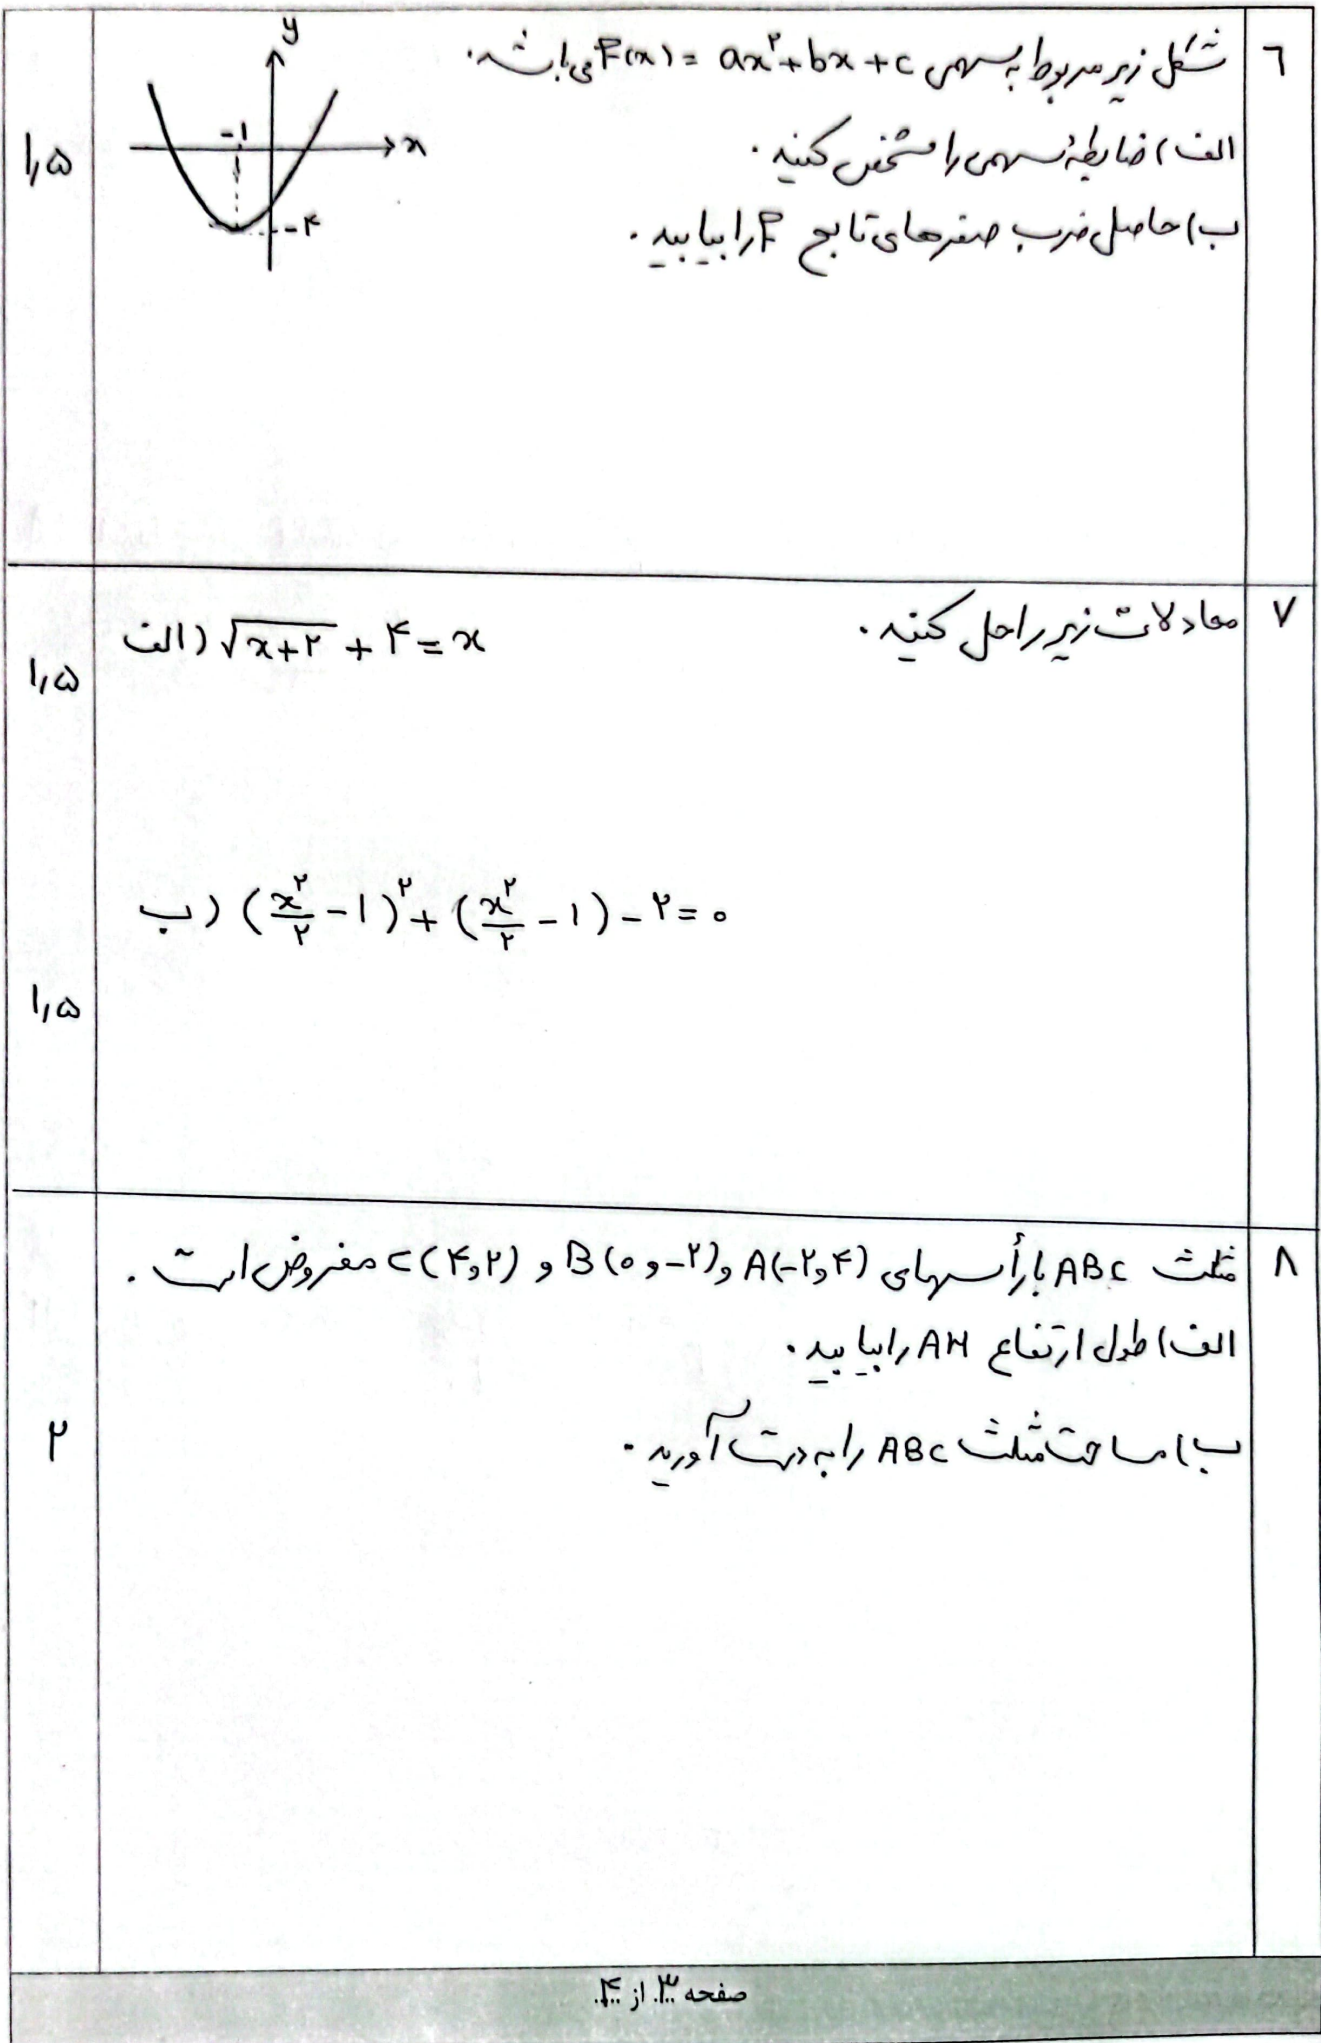 ۶ شکل زیر مربوط به سهمی F(x) = ax²+bx+c می‌باشد.
الف) ضابطهٔ سهمی را مشخص کنید.
ب) حاصل ضرب صفرهای تابع F را بیابید.
۱٫۵
y
x
-۱
-۴
۷ معادلات زیر را حل کنید.
الف) √(x+۲) + ۴ = x
۱٫۵
ب) (x²/۲ - ۱)² + (x²/۲ - ۱) - ۲ = ۰
۱٫۵
۸ مثلث ABC با رأسهای A(-۲,۴) و B(۰,-۲) و C(۴,۲) مفروض است.
الف) طول ارتفاع AH را بیابید.
ب) مساحت مثلث ABC را به دست آورید.
۲
صفحه ۳ از ۴